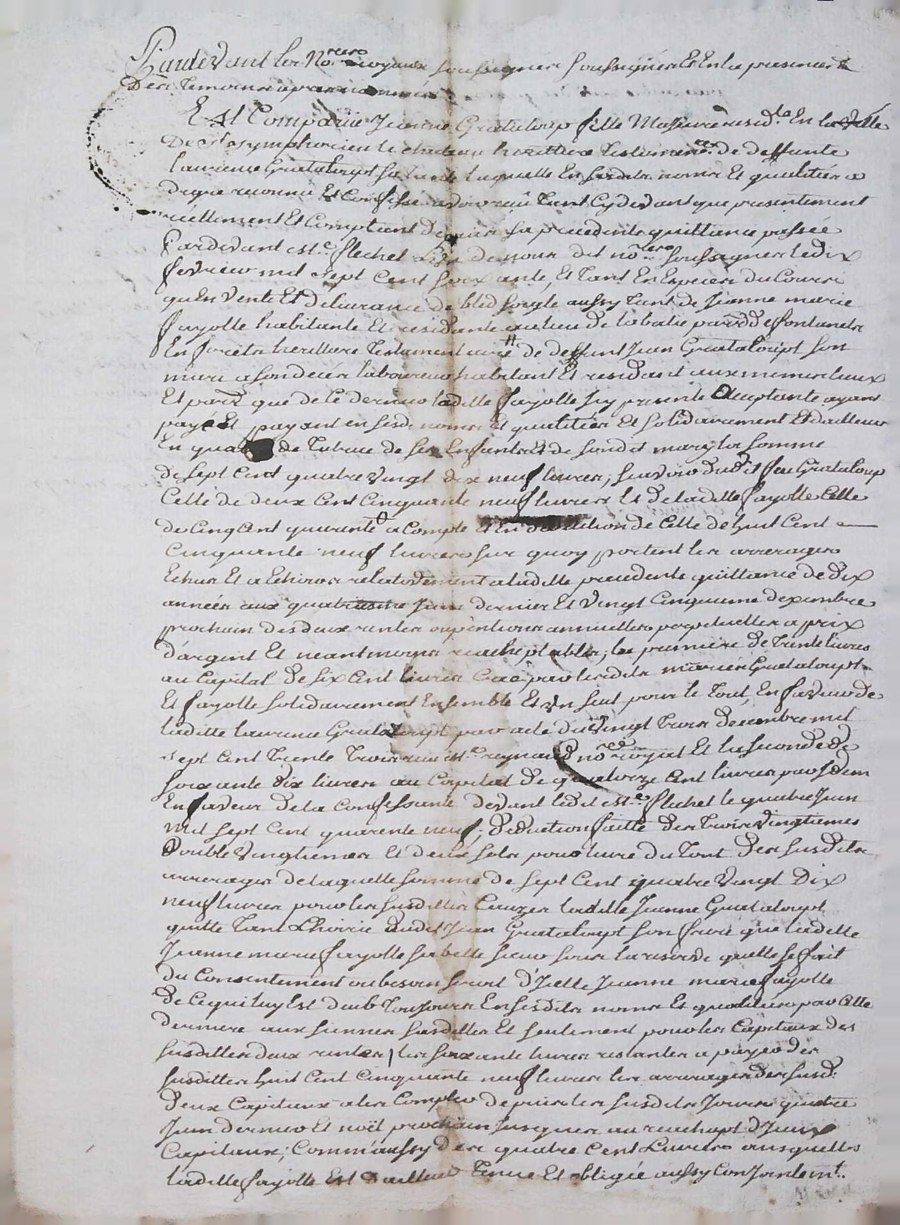 Pardevant les No.res royaux soussignés soussignés Et En la presence
Des temoins apres nommés
Est Comparüe Jeanne Grataloup fille Majeure resid.te En la Ville
De S.t symphorien le chateau heritiere Testamen.re de deffunte
laurence Grataloup sa tante laquelle En sesdits noms Et qualités a
de gré reconnu Et Confessé avoir reçu Tant Cydevant que presentement
reellement Et Comptant depuis sa precedente quittance passée
Pardevant m.e flechet L'un de nous dit no.res soussignés le dix
fevrier mil sept cent soixante, Et Tant En Especes du Cours
qu'En Vente Et delivrance de bled seigle aussy Tant de Jeanne marie
fayolle habitante Et residente au lieu de la batie par.sse de fontanes
En sa qualité heritiere Testamentaire de deffunt Jean Grataloupt son
mari a son deces laboureur habitant Et residant aux memes lieux
Et par.sse que dele dernier ladite fayolle icy presente acceptante ayant
payé Et payant En sesd. noms Et qualités Et solidairement Et d'ailleurs
En qualité de Tutrice de ses Enfants Et de sondit mary la somme
de sept Cent quatre Vingt dix neuf livres, sçavoir dudit feu Grataloup
Celle de deux Cent Cinquante neuf livres Et de ladite fayolle Celle
de Cinq Cent quarante a Compte Et En deduction de Celle de huit Cent
Cinquante neuf livres sur quoy portent les arrerages
Echus Et a Echoir relativement a ladite precedente quittance de dix
années aux quatrieme Juin dernier Et Vingt Cinquieme decembre
prochain des deux rentes ou pentions annuelles perpetuelles a prix
d'argent Et neantmoins rachetables, la premiere de Trente livres
au Capital de six Cent livres Créée par lesdits mariés Grataloupt
Et fayolle solidairement Ensemble Et un seul pour le Tout, En faveur de
ladite laurence Grataloupt par acte du Vingt Trois decembre mil
sept Cent Trente Trois m.e regnaud no.re royal Et la seconde de
soixante dix livres au Capital de quatorze Cent livres par Idem
En faveur de la Confessante devant ledit m.e flechet le quatre Juin
mil sept Cent quarente neuf; deduction faitte des Trois Vingtiemes
double Vingtiemes Et deux sols pour livre du Tout des susdits
arrerages de laquelle somme de sept Cent quatre Vingt Dix
neuf livres pour les susdittes Causes ladite Jeanne Grataloupt
quitte Tant L'hoirie dudit Jean Grataloupt son frere que ladite
Jeanne marie fayolle sa belle sœur sous la reserve quelle se fait
du Consentement au besoin seroit d'Icelle Jeanne marie fayolle
de Cequi luy Est dub Toujours En sesdits noms Et qualités par Cette
derniere aux siennes susdittes Et seulement pour les Capitaux des
susdittes deux rentes, les soixante livres restantes a payer des
susdittes huit Cent Cinquante neuf livres les arrerages desd. susd.
deux Capitaux a les Compter depuis les susdits Jours quatre
Juin dernier Et noël prochain Jusques au rachapt d'Iceux
Capitaux; Comm'aussy des quatre Cent Livres ausquelles
ladite fayolle Est d'ailleurs Tenue Et obligée aussy ConJointem.t